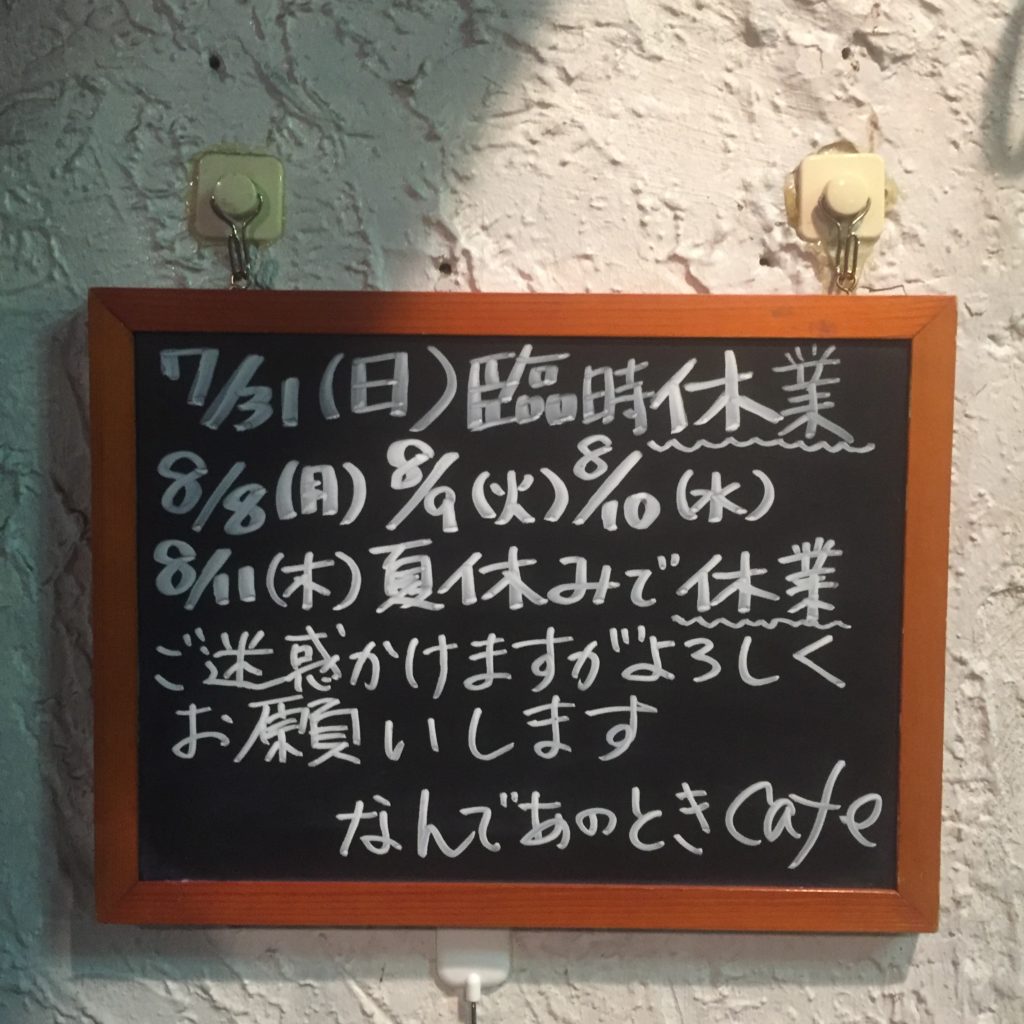 7/31(日)臨時休業
8/8(月) 8/9(火) 8/10(水)
8/11(木)夏休みで休業
ご迷惑かけますがよろしく
お願いします
なんであのときCafe